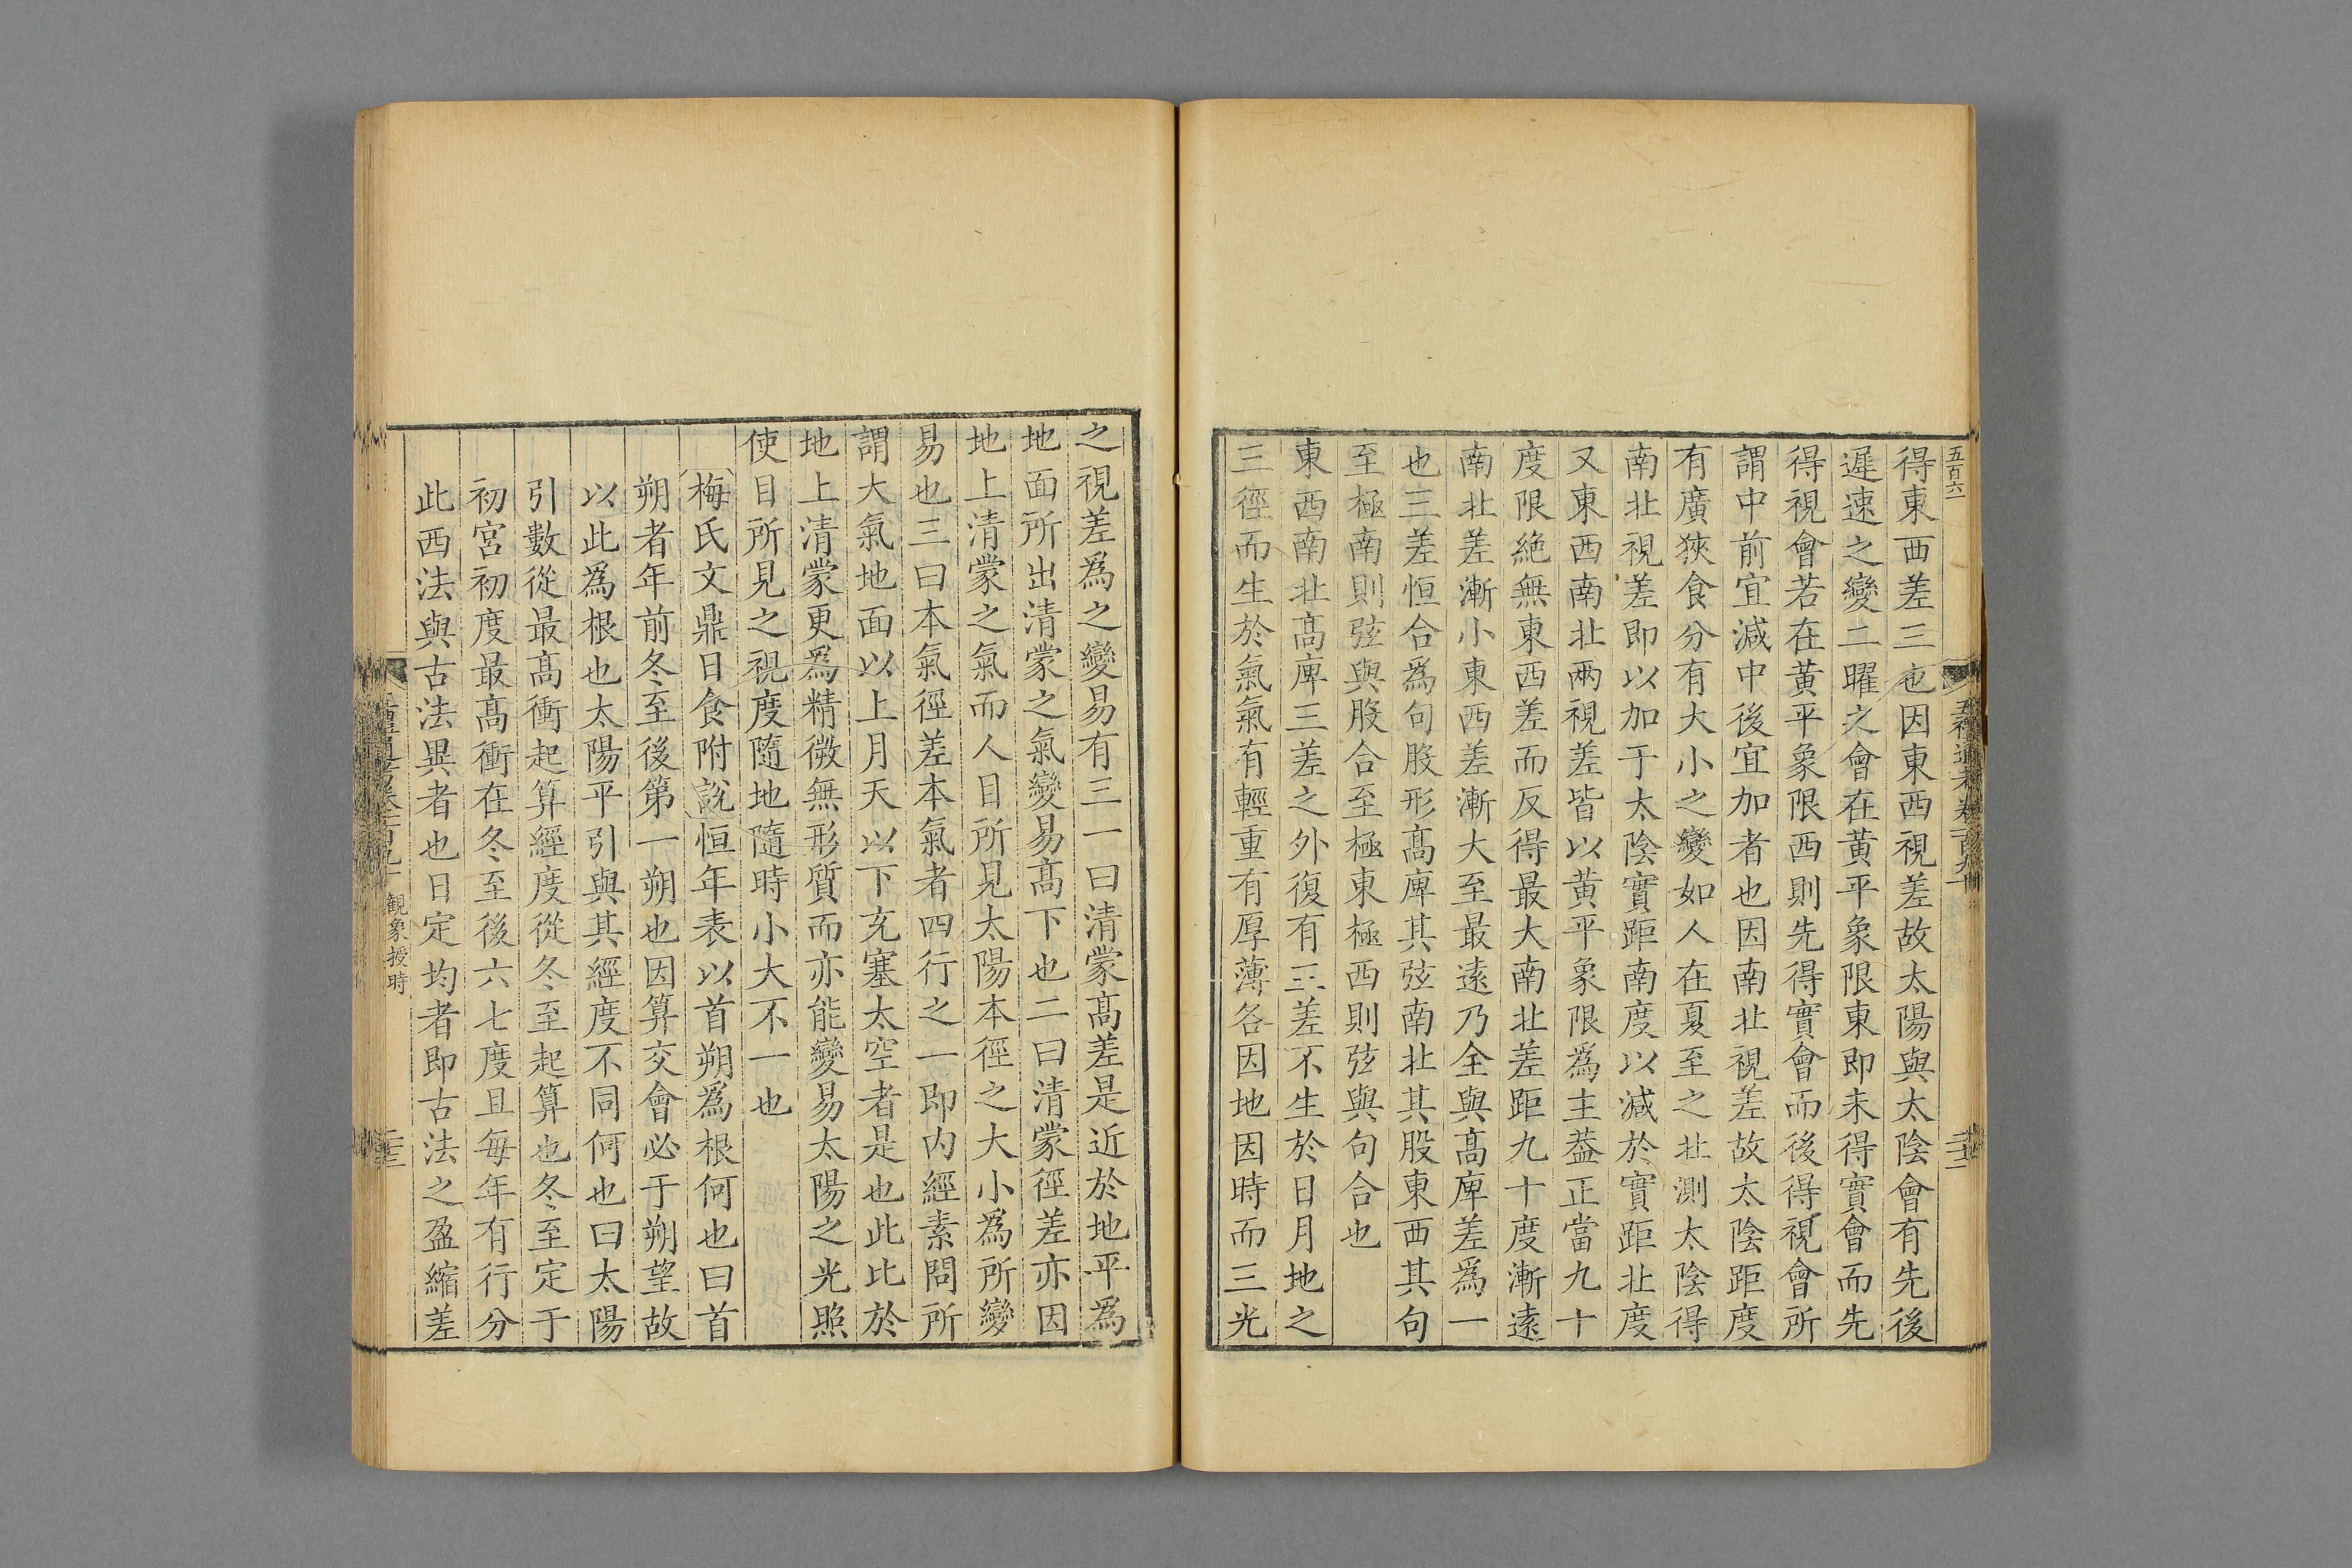 五百六
得東西差三也因東西視差故太陽與太陰會有先後
遲速之變二曜之會在黃平象限東即未得實會而先
得視會若在黃平象限西則先得實會而後得視會所
謂中前宜減中後宜加者也因南北視差故太陰距度
有廣狹食分有大小之變如人在夏至之北測太陰得
南北視差即以加于太陰實距南度以減於實距北度
又東西南北兩視差皆以黃平象限爲主葢正當九十
度限絶無東西差而反得最大南北差距九十度漸逺
南北差漸小東西差漸大至最逺乃全與髙庳差爲一
也三差恒合爲句股形髙庳其弦南北其股東西其句
至極南則弦與股合至極東極西則弦與句合也
東西南北髙庳三差之外復有三差不生於日月地之
三徑而生於氣氣有輕重有厚薄各因地因時而三光
之視差爲之變易有三一曰清蒙髙差是近於地平爲
地面所出清蒙之氣變易髙下也二曰清蒙徑差亦因
地上清蒙之氣而人目所見太陽本徑之大小爲所變
易也三曰本氣徑差本氣者四行之一即内經素問所
謂大氣地面以上月天以下充塞太空者是也此比於
地上清蒙更爲精微無形質而亦能變易太陽之光照
使目所見之視度隨地隨時小大不一也
梅氏文鼎日食附說恒年表以首朔爲根何也曰首
朔者年前冬至後第一朔也因算交會必于朔望故
以此爲根也太陽平引與其經度不同何也曰太陽
引數從最髙衝起算經度從冬至起算也冬至定于
初宮初度最髙衝在冬至後六七度且每年有行分
此西法與古法異者也日定均者即古法之盈縮差
觀象授時